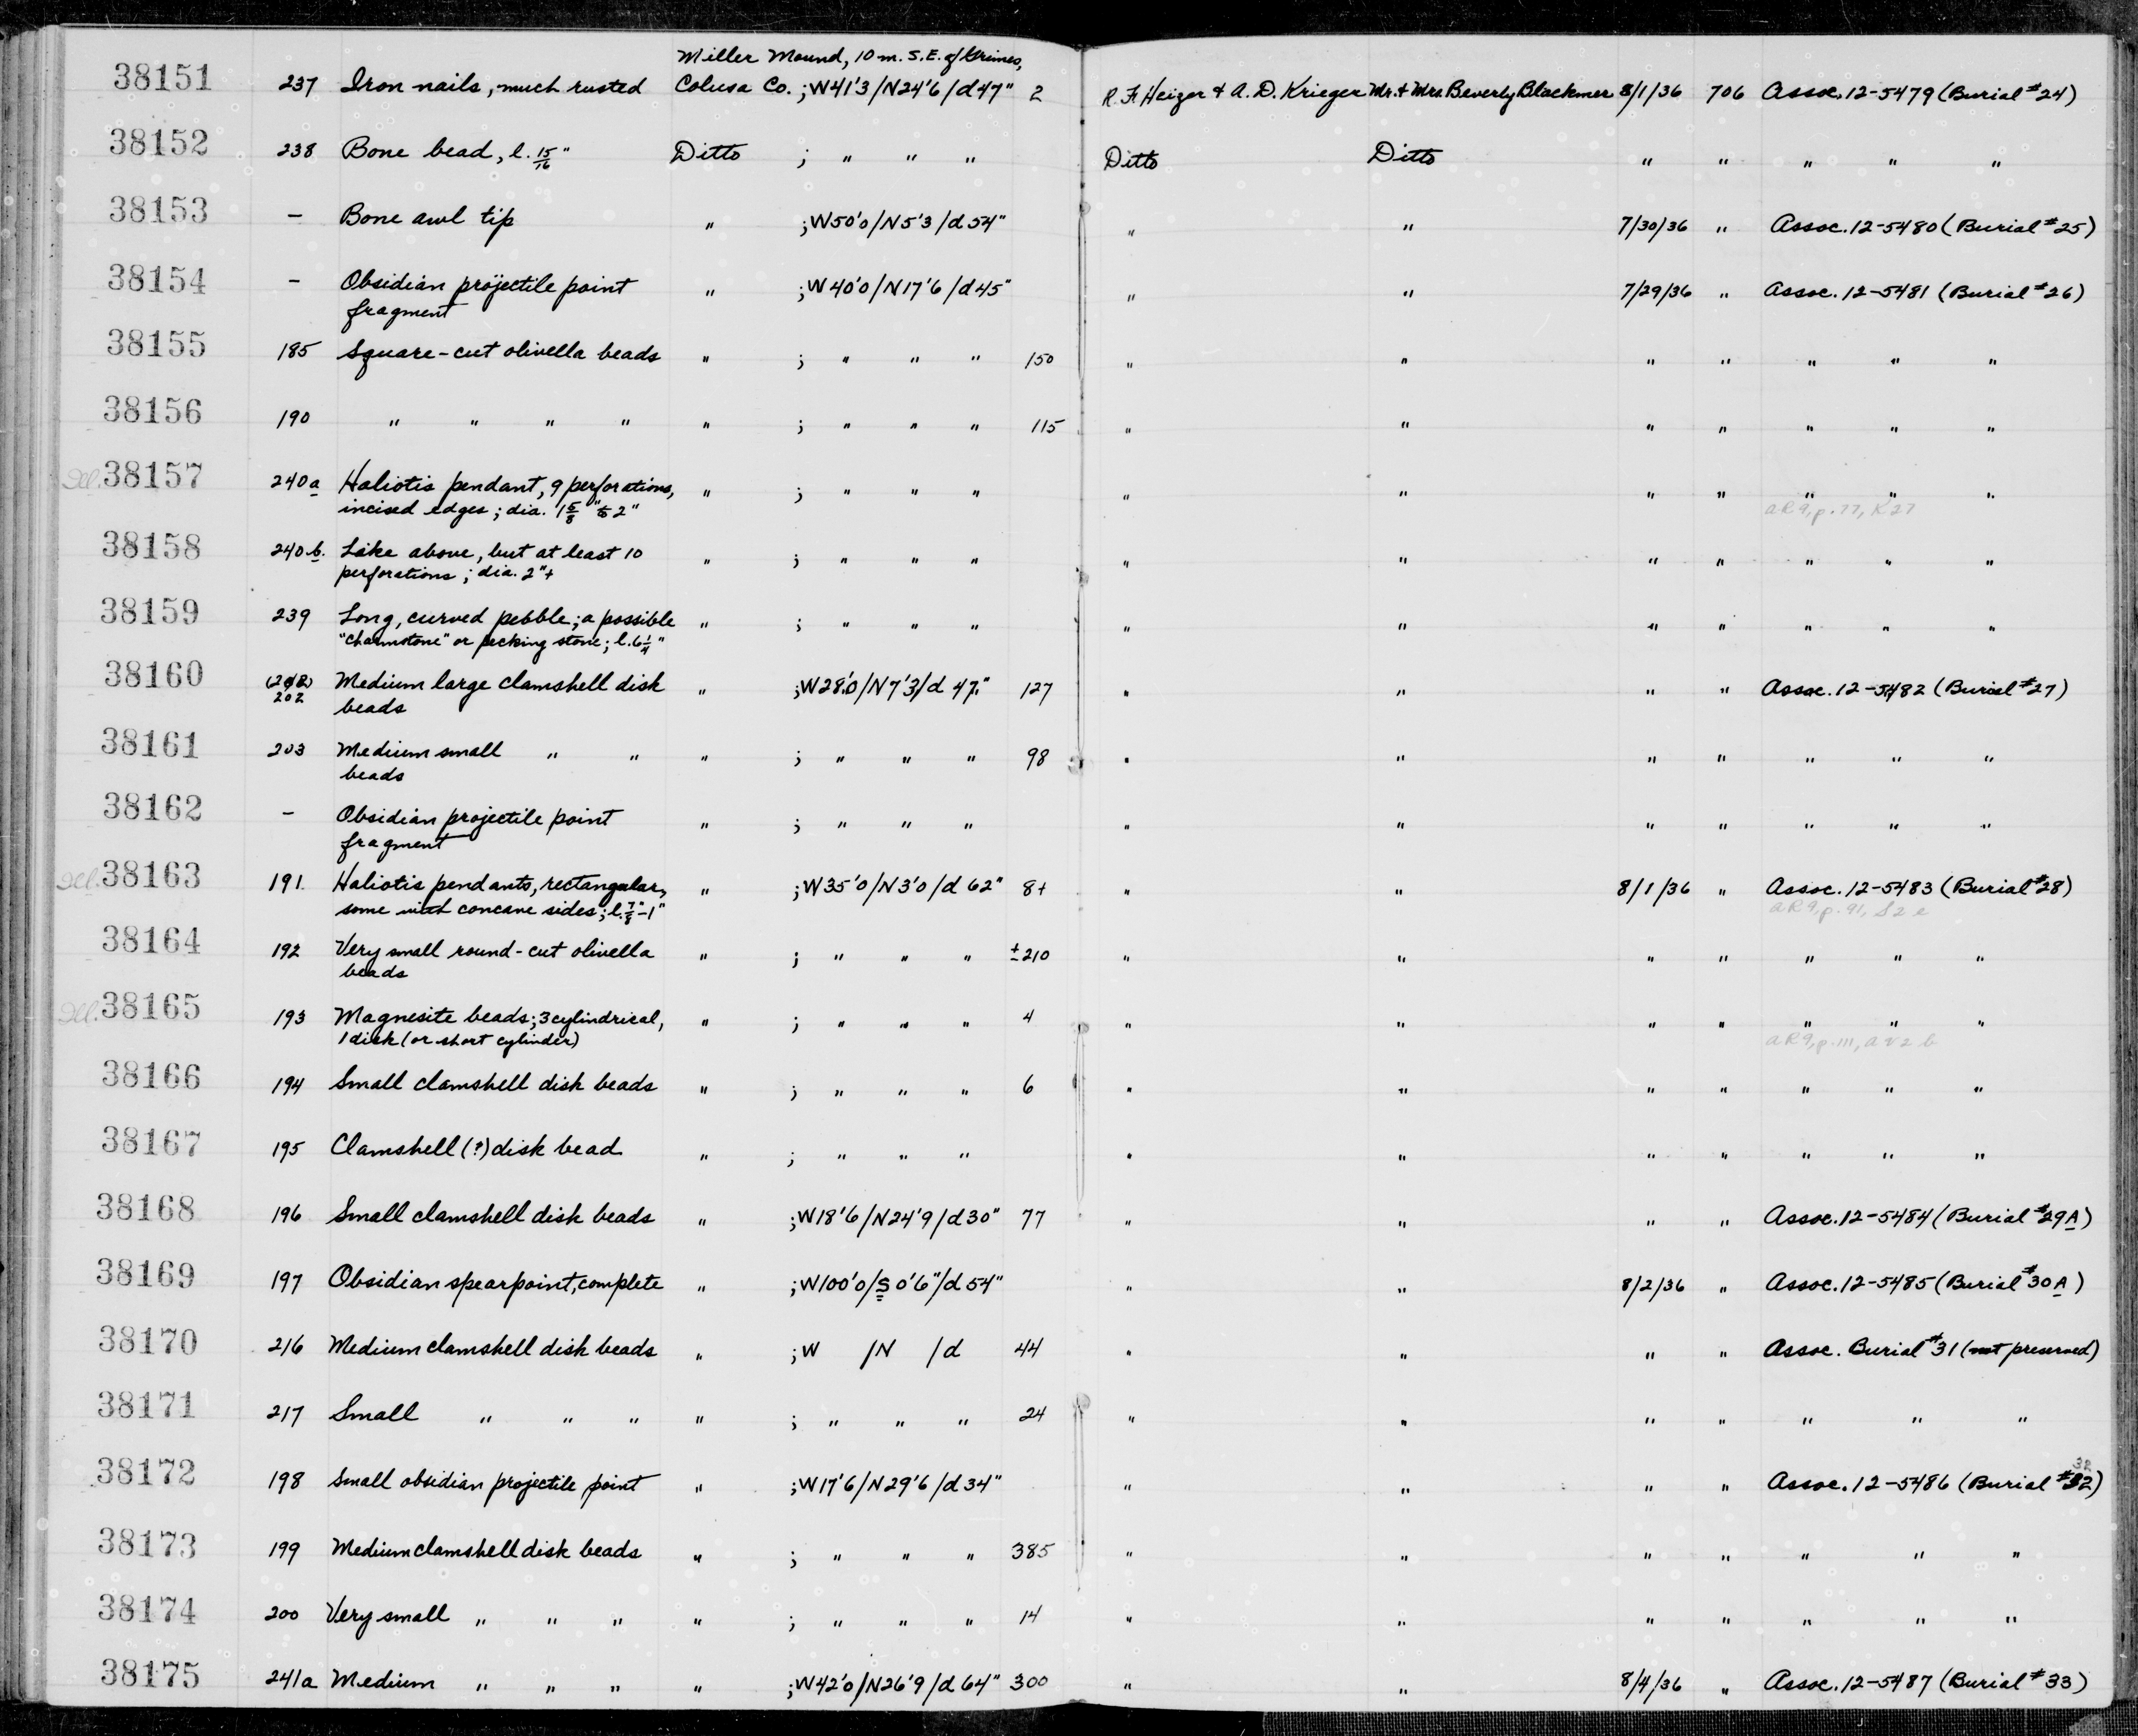 Miller Mound, 10 m. S.E. of Grimes,
38151 237 Iron nails, much rusted Colusa Co. ; W41'3/N24'6/d47" 2 R. F. Heizer & A. D. Krieger Mr. & Mrs. Beverly Blackmer 8/1/36 706 Assoc. 12-5479 (Burial #24)
38152 238 Bone bead, l. 15/16" Ditto ; " " " Ditto Ditto " " " " "
38153 - Bone awl tip " ; W50'0/N5'3/d54" " " 7/30/36 " Assoc. 12-5480 (Burial #25)
38154 - Obsidian projectile point " ; W40'0/N17'6/d45" " " 7/29/36 " Assoc. 12-5481 (Burial #26)
fragment
38155 185 Square-cut olivella beads " ; " " " 150 " " " " " " "
38156 190 " " " " " ; " " " 115 " " " " " " "
Ill. 38157 240a Haliotis pendant, 9 perforations, " ; " " " " " " " " " "
incised edges; dia. 1 5/8" to 2" AR9, p. 77, K27
38158 240b. Like above, but at least 10 " ; " " " " " " " " " "
perforations; dia. 2"+
38159 239 Long, curved pebble; a possible " ; " " " " " " " " " "
"charmstone" or pecking stone; l. 6 1/4"
38160 (202) Medium large clamshell disk " ; W28'0/N7'3/d 47" 127 " " " " Assoc. 12-5482 (Burial #27)
202 beads
38161 203 Medium small " " " ; " " " 98 " " " " " " "
beads
38162 - Obsidian projectile point " ; " " " " " " " " " "
fragment
Ill. 38163 191. Haliotis pendants, rectangular, " ; W35'0/N3'0/d 62" 8+ " " 8/1/36 " Assoc. 12-5483 (Burial #28)
some with concave sides; l. 7/8"-1" AR9, p. 91, S2e
38164 192 Very small round-cut olivella " ; " " " ±210 " " " " " " "
beads
Ill. 38165 193 Magnesite beads; 3 cylindrical, " ; " " " 4 " " " " " " "
1 disk (or short cylinder) AR9, p. 111, AV2b
38166 194 Small clamshell disk beads " ; " " " 6 " " " " " " "
38167 195 Clamshell (?) disk bead " ; " " " " " " " " " "
38168 196 Small clamshell disk beads " ; W18'6/N24'9/d30" 77 " " " " Assoc. 12-5484 (Burial #29A)
38169 197 Obsidian spearpoint, complete " ; W100'0/S 0'6"/d54" " " 8/2/36 " Assoc. 12-5485 (Burial #30A)
38170 216 Medium clamshell disk beads " ; W /N /d 44 " " " " Assoc. Burial #31 (not preserved)
38171 217 Small " " " " ; " " " 24 " " " " " " "
38172 198 Small obsidian projectile point " ; W17'6/N29'6/d34" " " " " Assoc. 12-5486 (Burial #32) 32
38173 199 Medium clamshell disk beads " ; " " " 385 " " " " " " "
38174 200 Very small " " " " ; " " " 14 " " " " " " "
38175 241a Medium " " " " ; W42'0/N26'9/d64" 300 " " 8/4/36 " Assoc. 12-5487 (Burial #33)